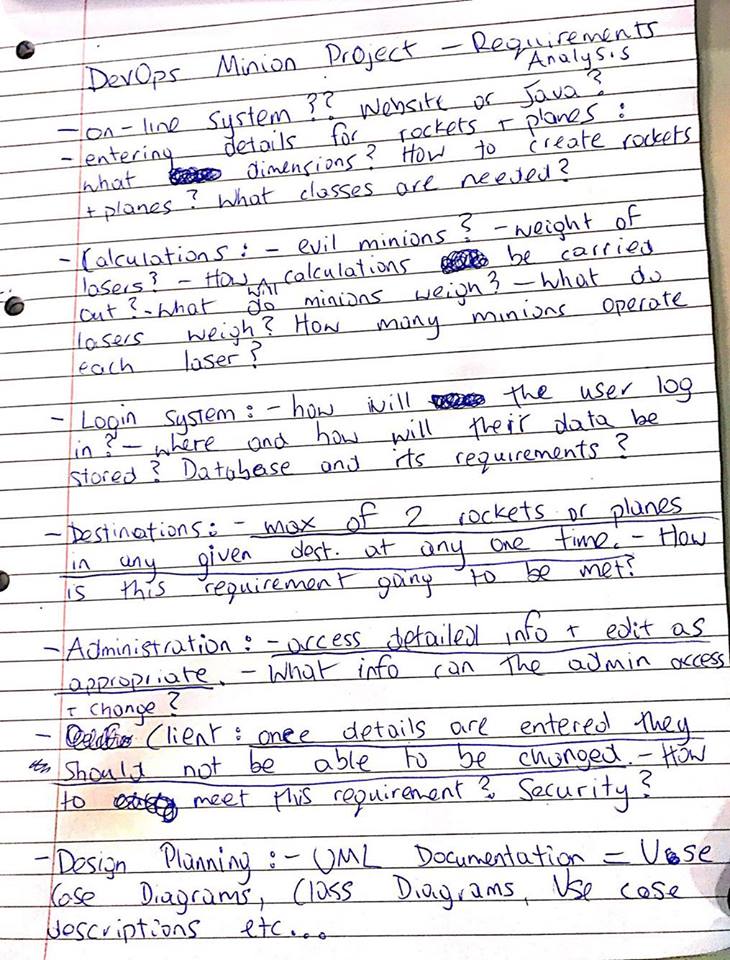 DevOps Minion Project - Requirements
Analysis
- on-line system ?? Website or Java?
- entering details for rockets + planes :
what dimensions? How to create rockets
+ planes? What classes are needed?
- Calculations : - evil minions? - weight of
lasers? - How will calculations be carried
out? - what do minions weigh? - what do
lasers weigh? How many minions operate
each laser?
- Login system : - how will the user log
in? - where and how will their data be
stored? Database and its requirements?
- Destinations : - max of 2 rockets or planes
in any given dest. at any one time. - How
is this requirement going to be met?
- Administration : - access detailed info + edit as
appropriate. - What info can the admin access
+ change?
- Client : once details are entered they
should not be able to be changed. - How
to meet this requirement? Security?
- Design Planning : - UML Documentation = Use
Case Diagrams, Class Diagrams, Use case
descriptions etc...